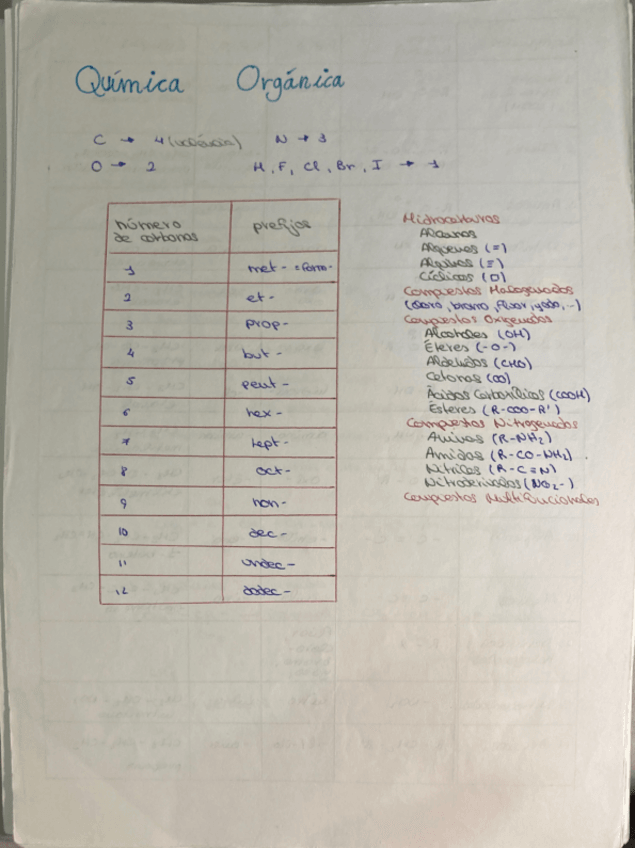 Química Orgánica
C → 4 (valencia) N → 3
O → 2 H, F, Cl, Br, I → 1
número de carbonos prefijos
1 met- = form-
2 et-
3 prop-
4 but-
5 pent-
6 hex-
7 hept-
8 oct-
9 non-
10 dec-
11 undec-
12 dodec-
Hidrocarburos
Alcanos
Alquenos (=)
Alquinos (≡)
Cíclicos (O)
Compuestos Halogenados
(cloro, bromo, fluor, yodo, -)
Compuestos Oxigenados
Alcoholes (OH)
Éteres (-O-)
Aldehidos (CHO)
Cetonas (CO)
Ácidos Carboxílicos (COOH)
Ésteres (R-COO-R')
Compuestos Nitrogenados
Aminas (R-NH₂)
Amidas (R-CO-NH₂)
Nitrilos (R-C≡N)
Nitroderivados (NO₂-)
Compuestos Multifuncionales